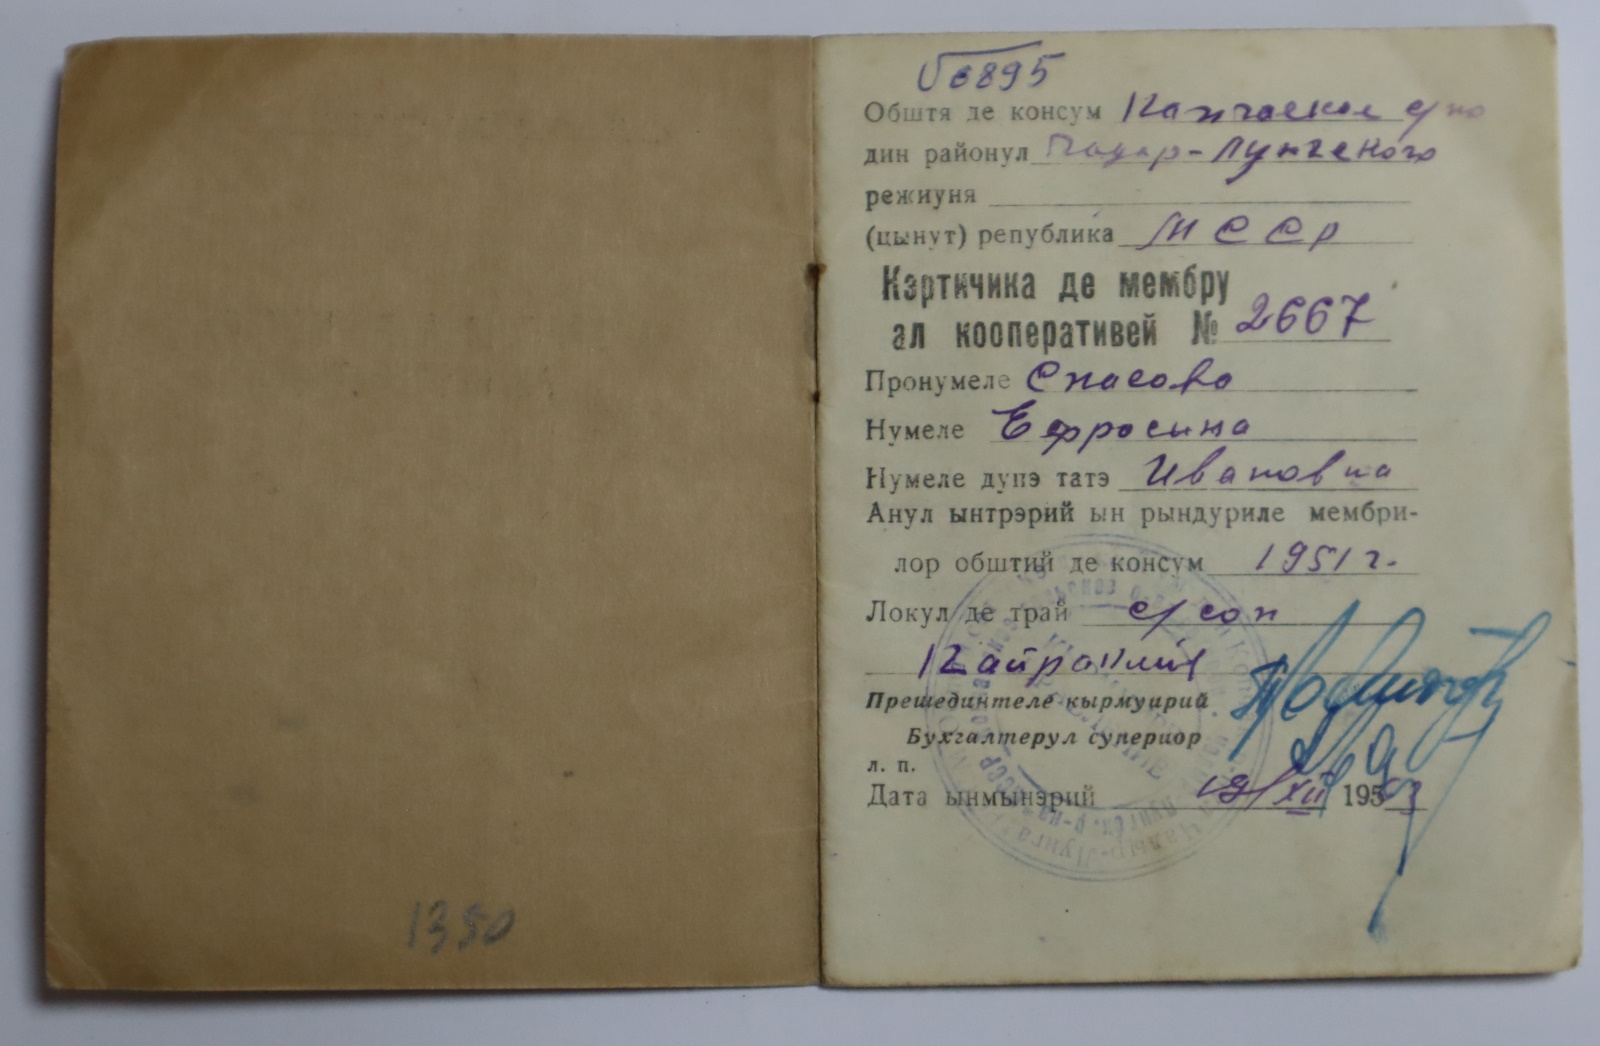 1350
6895
Обштя де консум Капчаское с/по
дин районул Чадыр-Лунгского
режиуня
(цынут) република МССР
Кэртичика де мембру
ал кооперативей № 2667
Пронумеле Спасова
Нумеле Ефросина
Нумеле дупэ татэ Ивановна
Анул ынтрэрий ын рындуриле мембри-
лор обштий де консум 1951 г.
Локул де трай с/сов
Кайраклия
Прешединтеле кырмуирий
Бухгалтерул супериор
л. п.
Дата ынмынэрий 19/XII 1953